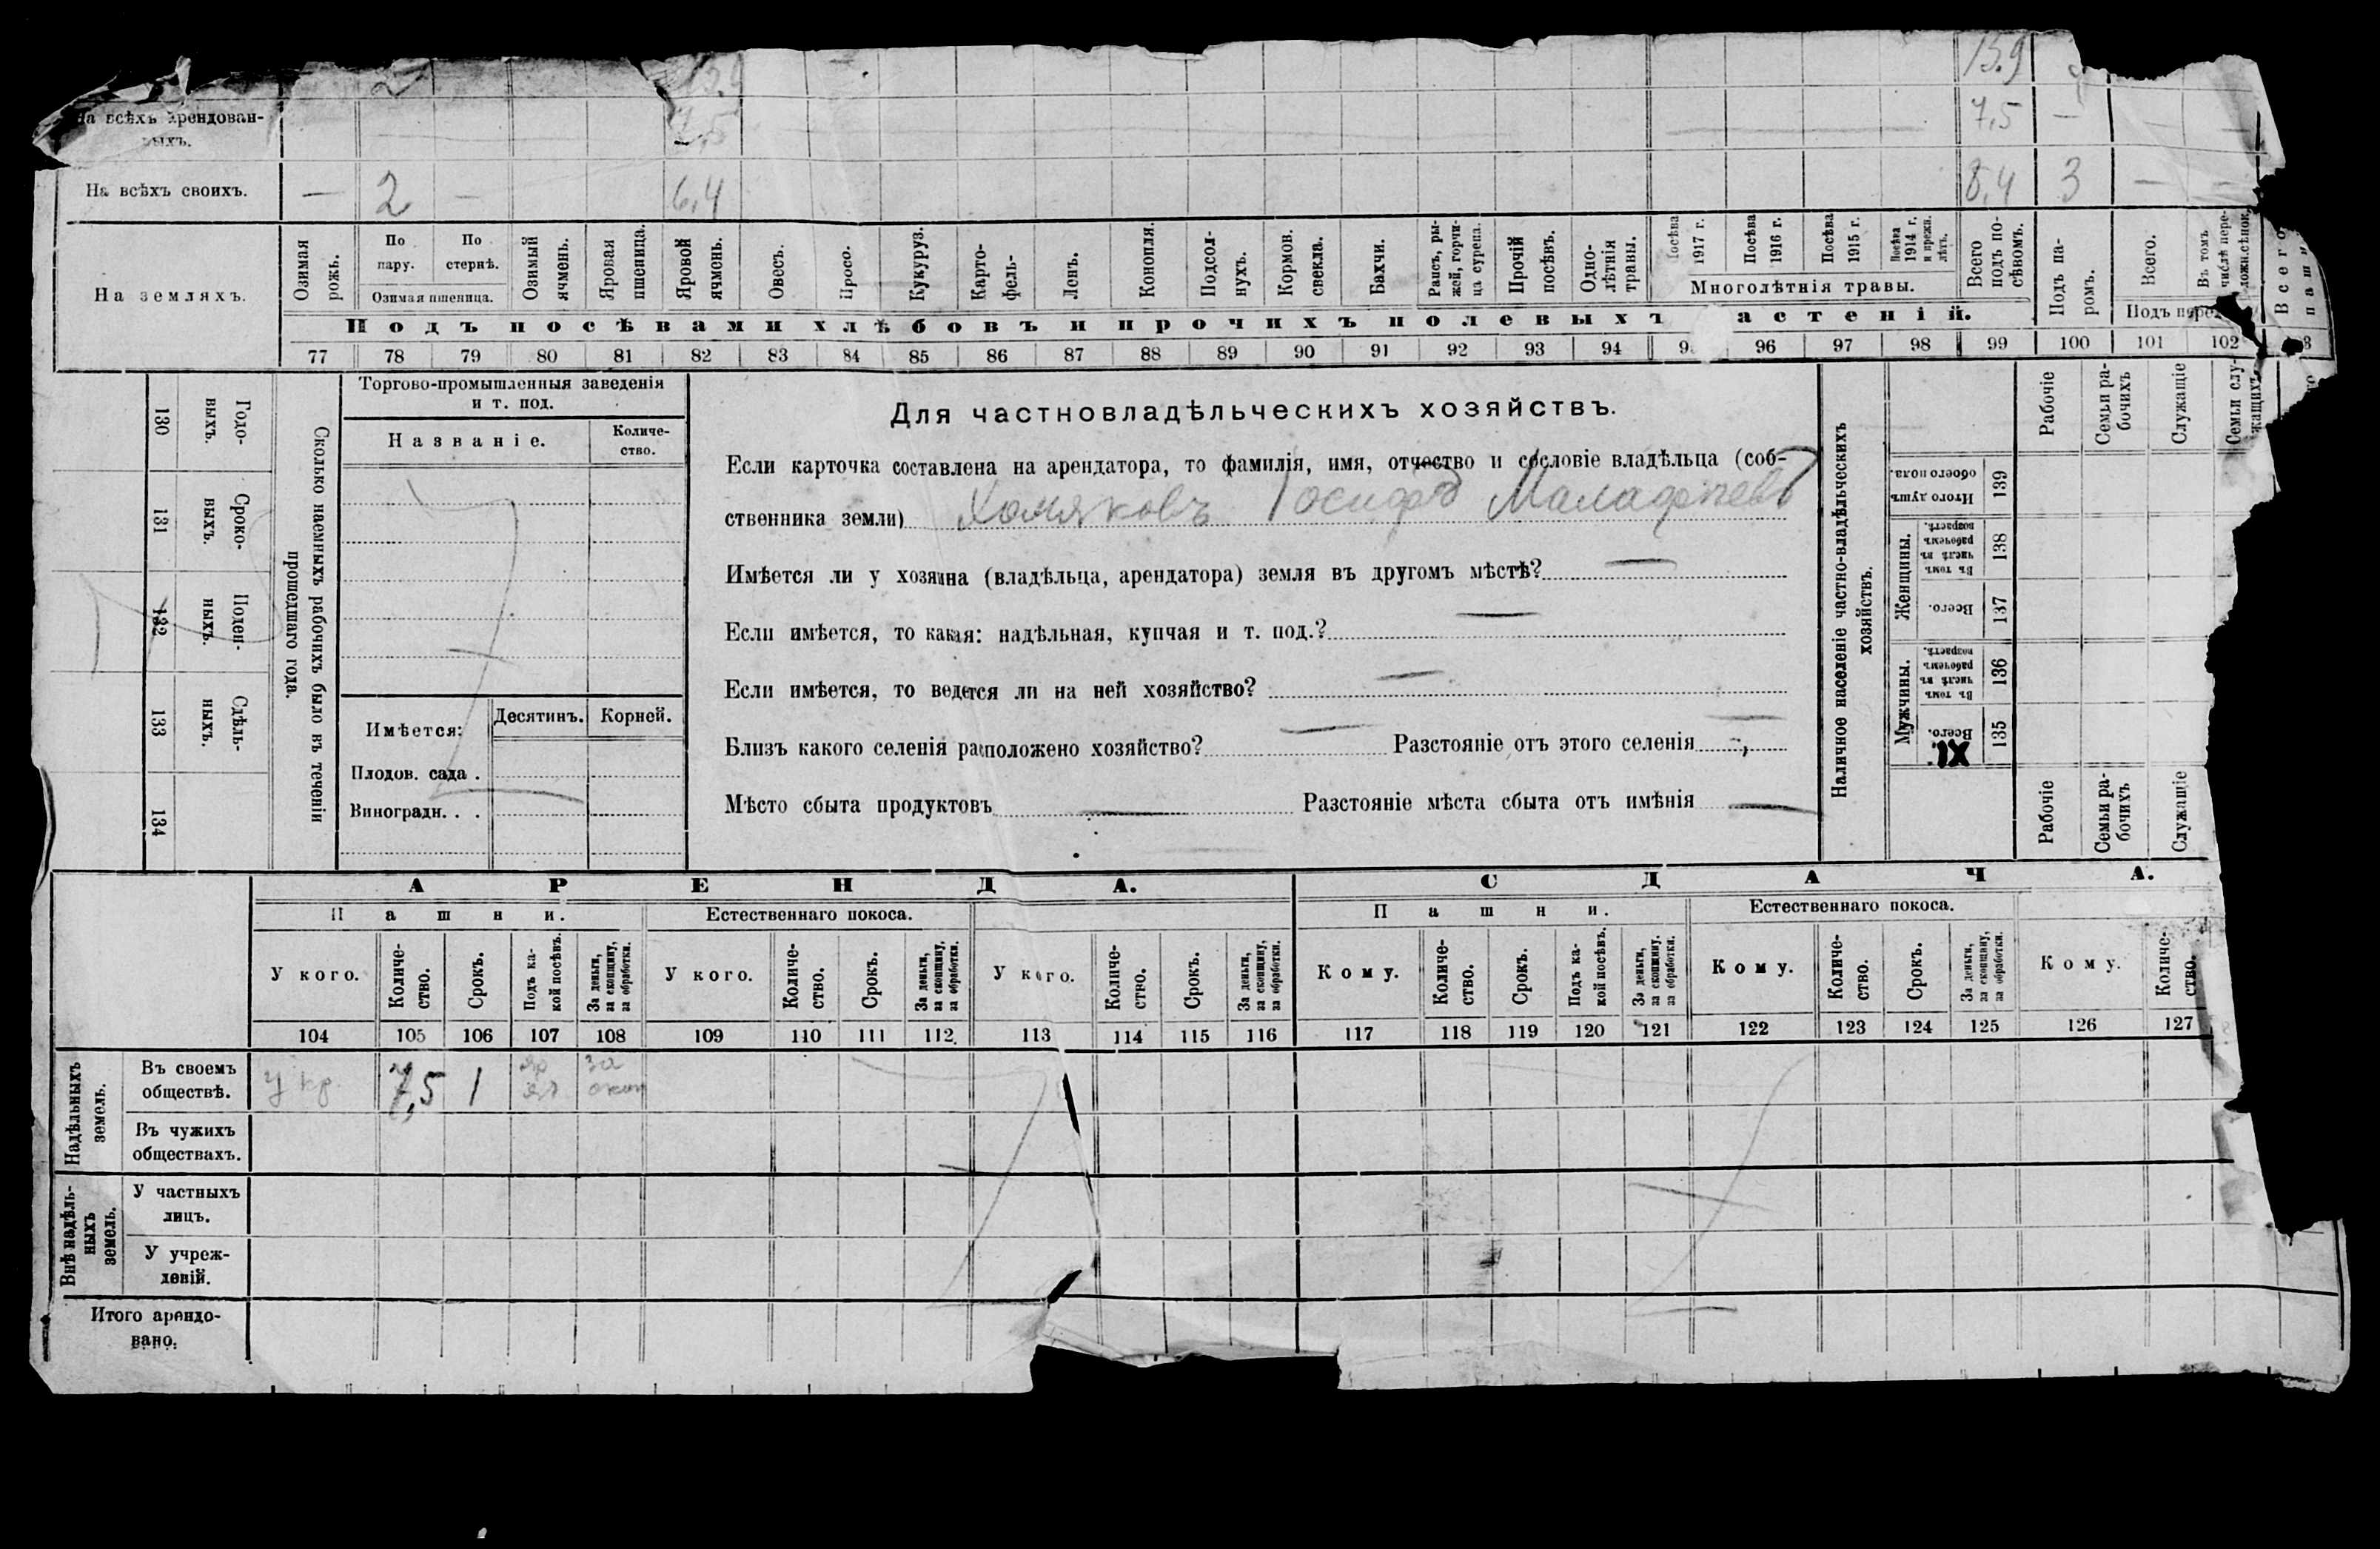 2 13.9 13.9
На всѣхъ арендован-
ныхъ. 7,5 7,5 —
На всѣхъ своихъ. — 2 — 6,4 8,4 3 — —
На земляхъ.
Озимая рожь.
По пару.
По стернѣ.
Озимая пшеница.
Озимый ячмень.
Яровая пшеница.
Яровой ячмень.
Овесъ.
Просо.
Кукуруз.
Карто-
фель.
Ленъ.
Конопля.
Подсол-
нухъ.
Кормов. свекла.
Бахчи.
Рапсъ, ры-
жей, горчи-
ца сурепа.
Прочій посѣвъ.
Одно-
лѣтнія травы.
Посѣва 1917 г.
Посѣва 1916 г.
Посѣва 1915 г.
Посѣва 1914 г. и прежн. лѣтъ.
Многолѣтнія травы.
Всего подъ по-
сѣвомъ.
Подъ па-
ромъ.
Всего.
Въ томъ числѣ пере-
ложн.сѣнок.
Подъ
Всего
Подъ посѣвами хлѣбовъ и прочихъ полевыхъ астеній.
77 78 79 80 81 82 83 84 85 86 87 88 89 90 91 92 93 94 96 97 98 99 100 101 102
130 Годо-
выхъ.
131 Сроко-
выхъ.
132 Поден-
ныхъ.
133 Сдѣль-
ныхъ.
134
Сколько наемныхъ рабочихъ было въ теченіи
прошедшаго года.
Торгово-промышленныя заведенія
и т. под.
Названіе.
Количе-
ство.
Имѣется: Десятинъ. Корней.
Плодов. сада .
Виноградн. . .
Для частновладѣльческихъ хозяйствъ.
Если карточка составлена на арендатора, то фамилія, имя, отчество и сословіе владѣльца (соб-
ственника земли) Хомяковъ Іосифъ Малафѣевъ
Имѣется ли у хозяина (владѣльца, арендатора) земля въ другомъ мѣстѣ? —
Если имѣется, то какая: надѣльная, купчая и т. под.? —
Если имѣется, то ведется ли на ней хозяйство? —
Близъ какого селенія расположено хозяйство? — Разстояніе отъ этого селенія —
Мѣсто сбыта продуктовъ — Разстояніе мѣста сбыта отъ имѣнія —
Наличное населеніе частно-владѣльческихъ
хозяйствъ.
Рабочіе
Семьи ра-
бочихъ
Служащіе
Семьи слу-
жащихъ
Итого душъ обоего пола. 139
Женщины.
Въ томъ числѣ въ рабочемъ возрастѣ. 138
Всего. 137
Мужчины.
Въ томъ числѣ въ рабочемъ возрастѣ. 136
Всего. 135
XI.
Рабочіе
Семьи ра-
бочихъ
Служащіе
АРЕНДА. СДАЧА.
Пашни. Естественнаго покоса. Пашни. Естественнаго покоса.
У кого.
Количе-
ство.
Срокъ.
Подъ ка-
кой посѣвъ.
За деньги, за скопщину, за обработки.
У кого.
Количе-
ство.
Срокъ.
За деньги, за скопщину, за обработки.
У кого.
Количе-
ство.
Срокъ.
За деньги, за скопщину, за обработки.
Кому.
Количе-
ство.
Срокъ.
Подъ ка-
кой посѣвъ.
За деньги, за скопщину. за обработки.
Кому.
Количе-
ство.
Срокъ.
За деньги, за скопщину, за обработки.
Кому.
Количе-
ство.
104 105 106 107 108 109 110 111 112. 113 114 115 116 117 118 119 120 121 122 123 124 125 126 127
Надѣльныхъ земель.
Въ своемъ
обществѣ. у кр. 7,5 1 яр яч за скоп
Въ чужихъ
обществахъ.
Внѣ надѣль-
ныхъ земель.
У частныхъ
лицъ.
У учреж-
деній.
Итого арендо-
вано.